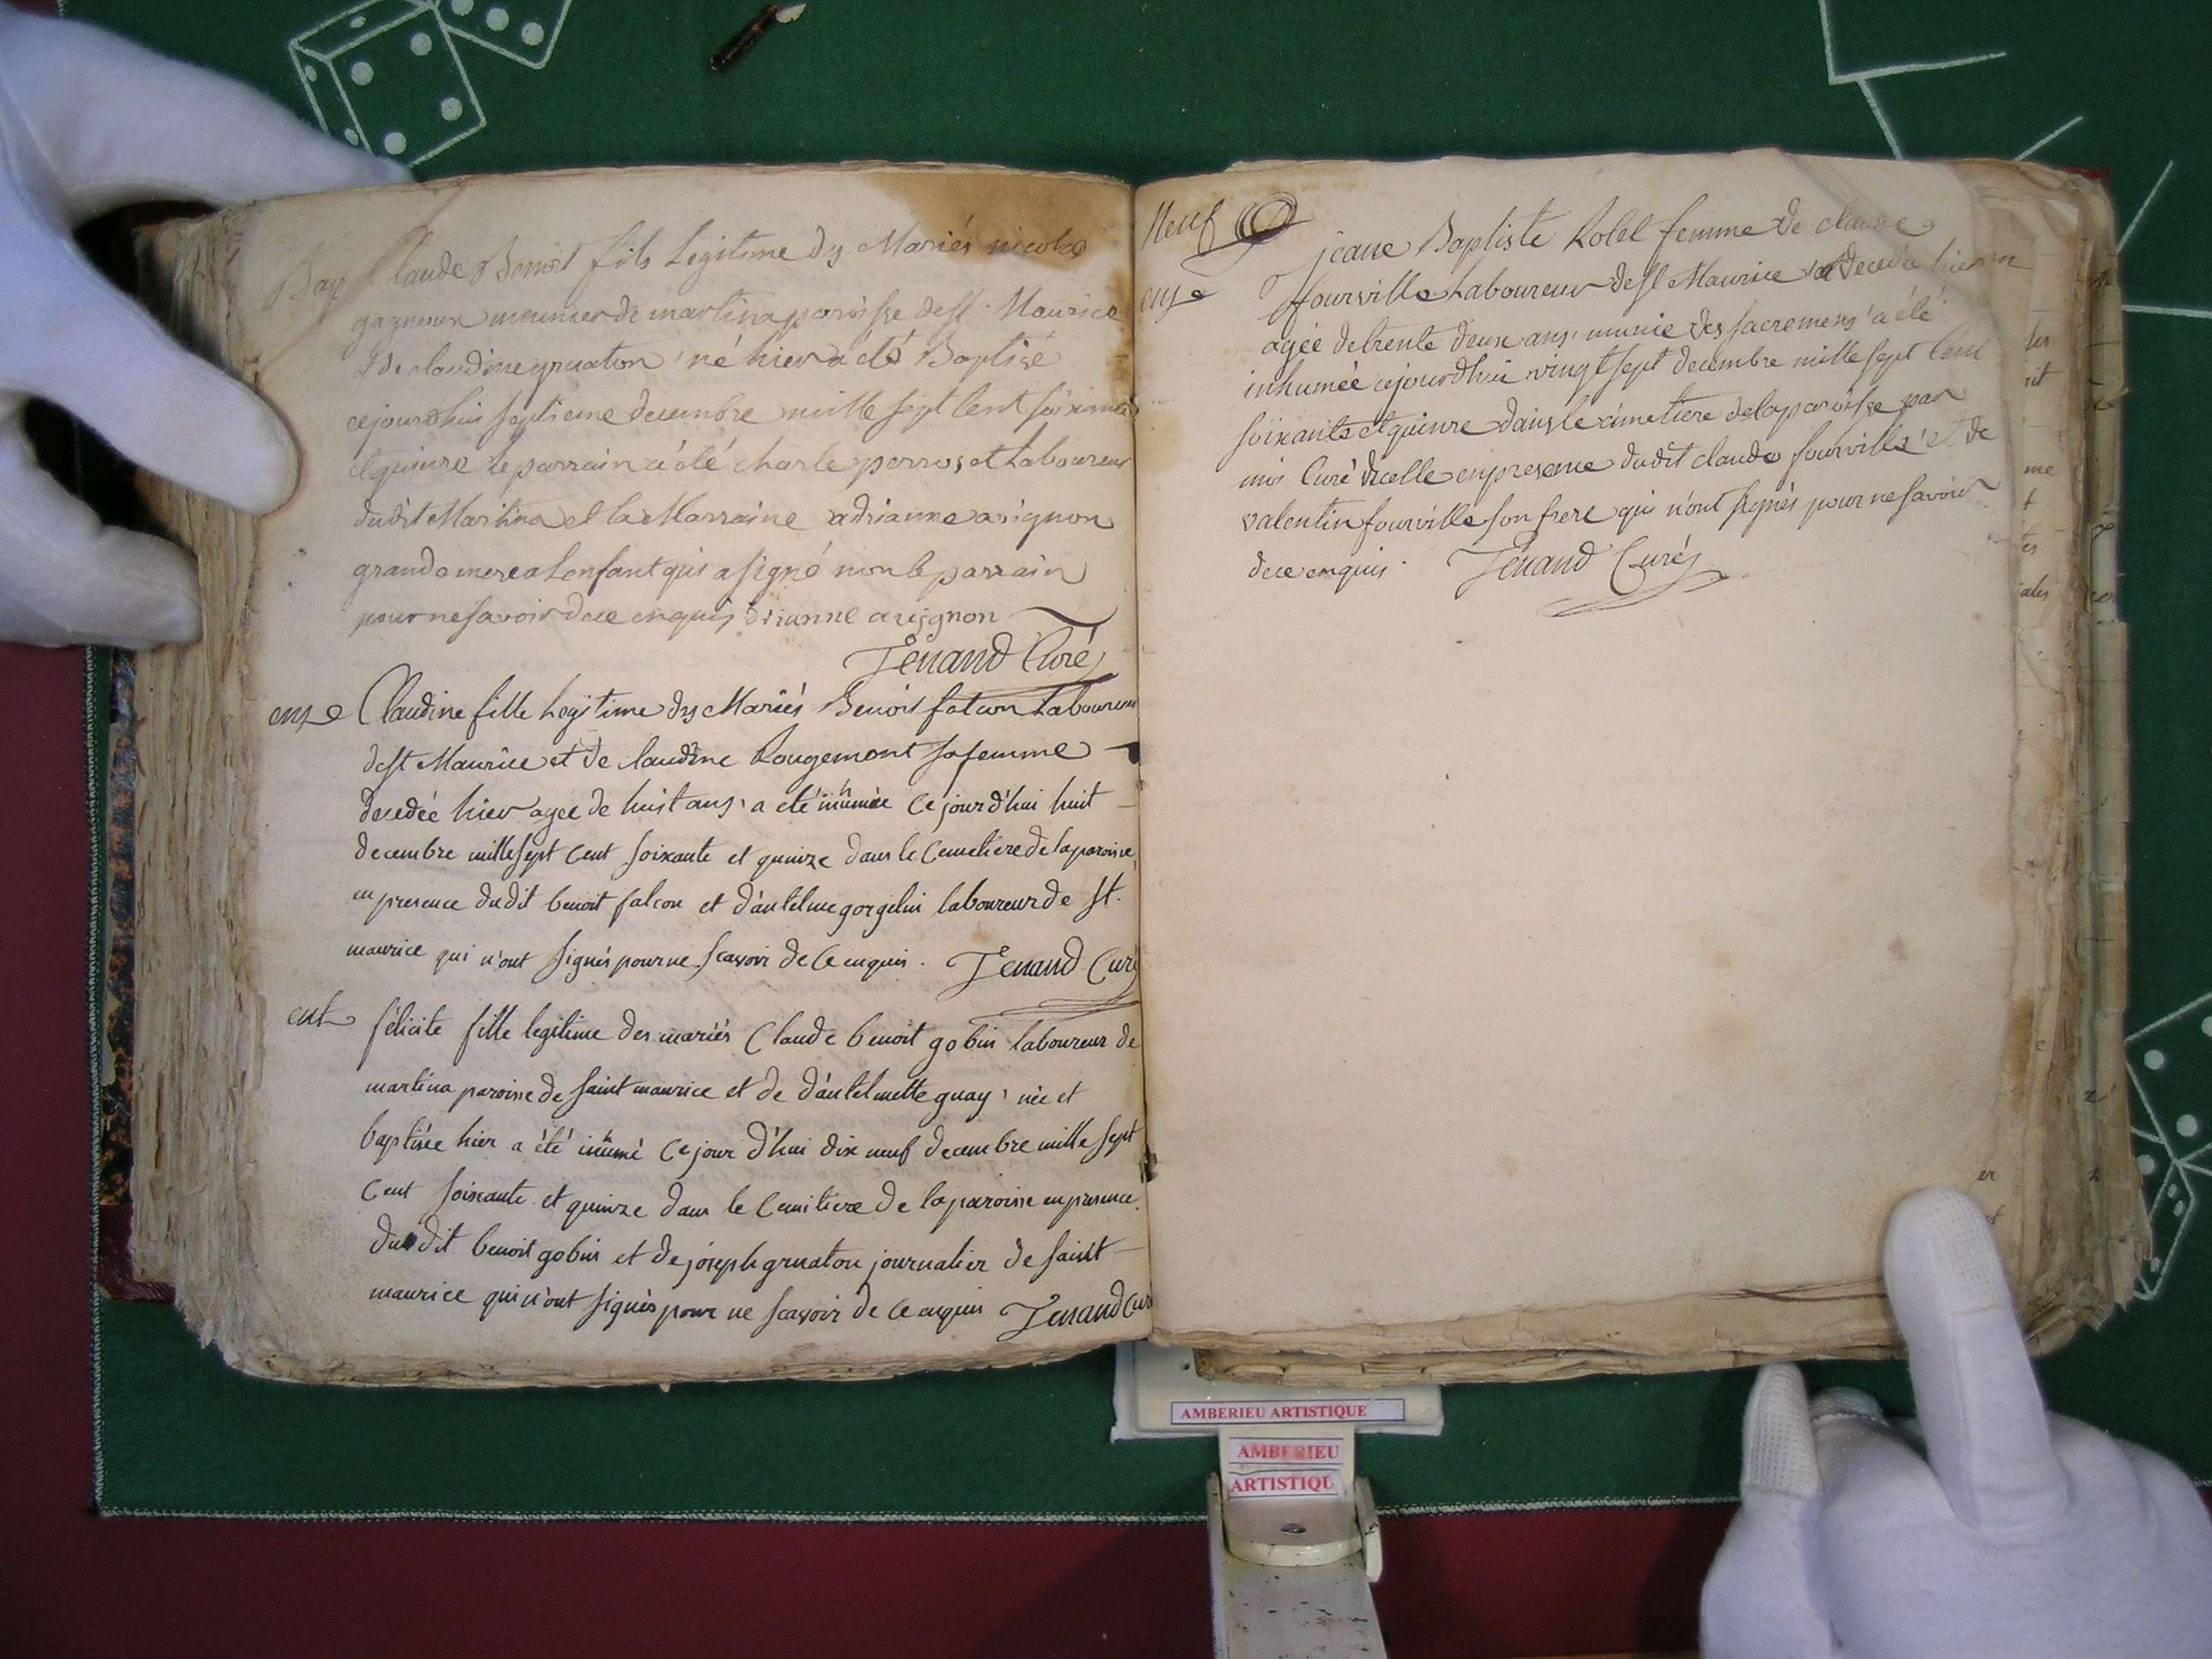 Bap Claude Benoit fils Legitime des Mariés nicolas
gagneux meunier de martina paroisse de st. Maurice
et de claudine gruaton né hier a été Baptisé
cejourdhui septieme decembre mille sept Cent soixante
et quinze le parrain a été charle perroset Laboureur
dudit Martina et la Marraine adrianne avignon
grande mere a Lenfant qui a signé non le parrain
pour ne savoir de ce enquis drianne avignon
Tenand Curé
ens Claudine fille Legitime des Mariés Benoit falcon Laboureur
de st Maurice et de claudine Rougemont sa femme
decedée hier agee de huit ans a eté inhumée Ce jour d'hui huit
decembre mille sept Cent soixante et quinze dans le Cemetiere de la paroisse
en presence dudit benoit falcon et d'antelme gorgelin laboureur de st.
maurice qui n'ont signés pour ne scavoir de Ce enquis. Tenand Curé
ent félicite fille legitime des mariés Claude benoit gobin laboureur de
martina paroisse de saint maurice et de d'antelmette guay née et
baptisée hier a été inhumé Ce jour d'hui dix neuf decembre mille sept
Cent soixante et quinze dans le Cemitiere de la paroisse en presence
du dit benoit gobin et de joseph gruaton journalier de saint
maurice qui n'ont signés pour ne scavoir de Ce enquis Tenand Cur
Neuf
jeane Baptiste Rolet femme de claude
ens fourville Laboureur de st Maurice decedée hier
agée de trente deux ans munie des sacremens a été
inhumée cejourdhui vingt sept decembre mille sept Cent
soixante et quinze dans le cimetiere de la paroisse par
moi Curé dicelle en presence dudit claude fourville et de
valentin fourville son frere qui n'ont signés pour ne savoir
de ce enquis. Tenand Curé
AMBERIEU ARTISTIQUE
AMBERIEU
ARTISTIQU